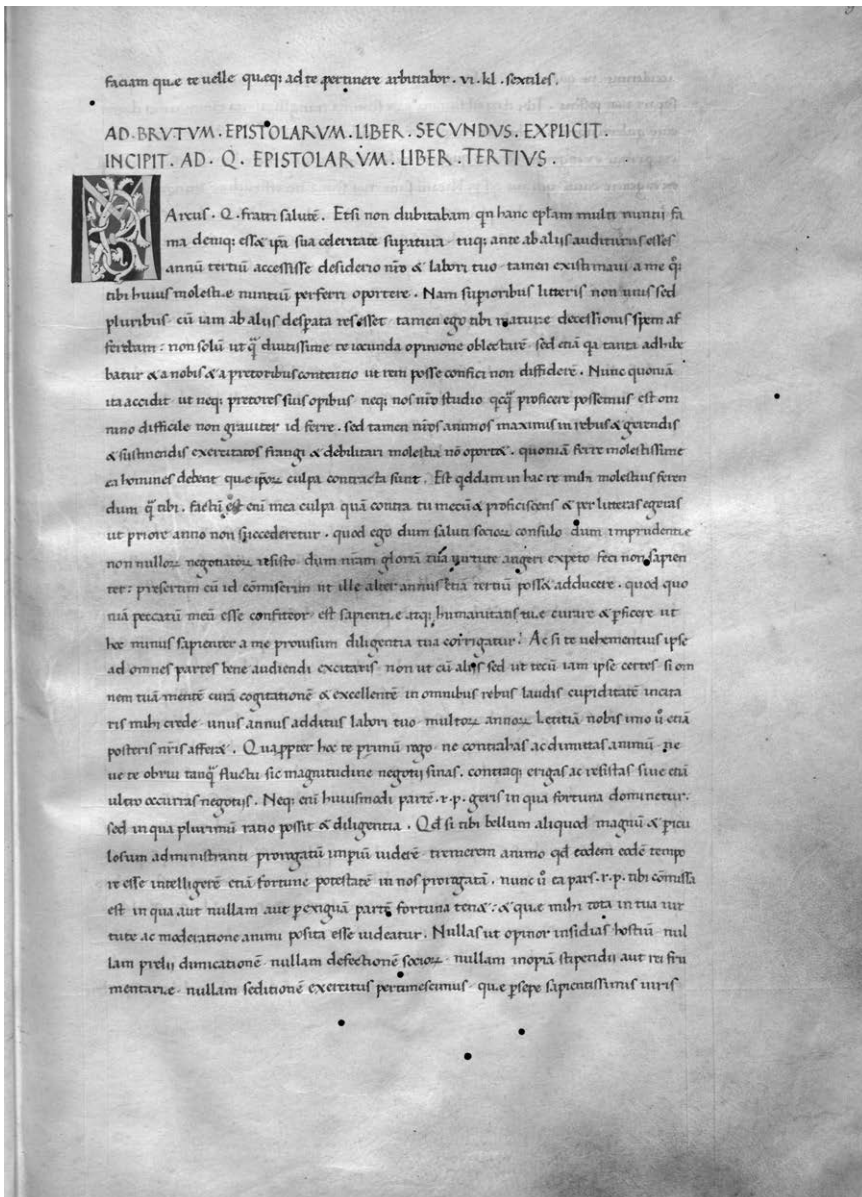 faciam quę te uelle queq; ad te ꝑtinere arbitrabor . vi . kl . sextiles .
AD . BRVTVM . EPISTOLARVM . LIBER . SECVNDVS . EXPLICIT .
INCIPIT . AD . Q . EPISTOLARVM . LIBER . TERTIVS .
MArcus . Q . fratri salutē . Etsi non dubitabam qn hanc epłam multi nuntii fa
ma deniq; esset ipsa sua celeritate supatura . tuq; ante ab aliis auditurus esses
annū tertiū accessisse desiderio nr̄o & labori tuo . tamen existimaui a me q̊;
tibi huius molestię nuntiū perferri oportere . Nam supioribus litteris non unis sed
pluribus . cū iam ab aliis despata res esset . tamen ego tibi mature decessionis spem af
ferebam : non solū ut q̄ diutissime te iocunda opinione oblectarē . sed etiā qa tanta adhibe
batur & a nobis & a pretoribus contentio ut rem posse confici non diffiderē . Nunc quoniā
ita accidit . ut neq; pretores suis opibus neq; nos nr̄o studio qcq̄ proficere possemus est om
nino difficile non grauiter id ferre . sed tamen nr̄os animos maximis in rebus & gerendis
& sustinendis exercitatos frangi & debilitari molestia nō oportet . quoniā ferre molestissime
ea homines debent quę ipoꝝ culpa contracta sunt . Est qddam in hac re mihi molestius feren
dum q̄ tibi . factū est eni mea culpa quā contra tu mecū & proficiscens & per litteras egeras
ut priore anno non succederetur . quod ego dum saluti socioꝝ consulo dum imprudentię
non nulloꝝ negotiatoꝝ resisto . dum nr̄am gloriā tua uirtute augeri expeto feci non sapien
ter : presertim cū id cōmiserim ut ille alter annus etiā tertiū posset adducere . quod quo
niā peccatū meū esse confiteor . est sapientię atq; humanitatis tuę curare & ꝑficere ut
hoc minus sapienter a me prouisum diligentia tua corrigatur . Ac si te uehementius ipse
ad omnes partes bene audiendi excitaris . non ut cū aliis sed ut tecū iam ipse certes . si om
nem tuā mentē curā cogitationē & excellentē in omnibus rebus laudis cupiditatē incita
ris mihi crede . unus annus additus labori tuo . multoꝝ annoꝝ letitiā nobis imo ů etiā
posteris nr̄is afferet . Quapp̱ter hoc te primū rogo . ne contrahas ac dimittas animū . ne
ue te obrui tanq̄ fluctu sic magnitudine negotii sinas . contraq; erigas ac resistas siue etiā
ultro occurras negotiis . Neq; eni huiusmodi partē . r . p . geris in qua fortuna dominetur .
sed in qua plurimū ratio possit & diligentia . Qd si tibi bellum aliquod magnū & ꝑicu
losum administranti . prorogatū impiū uiderē . tremerem animo qd eodem eodē tempo
re esse intelligerē etiā fortune potestatē in nos prorogatā . nunc ů ea pars . r . p . tibi cōmissa
est in qua aut nullam aut ꝑexiguā partē fortuna tenet : & quę mihi tota in tua uir
tute ac moderatione animi posita esse uideatur . Nullas ut opinor insidias hostiū . nul
lam prelii dimicationē . nullam defectionē socioꝝ . nullam inopiā stipendii aut rei fru
mentarię . nullam seditionē exercitus pertimescimus . quę ꝑsepe sapientissimis uiris